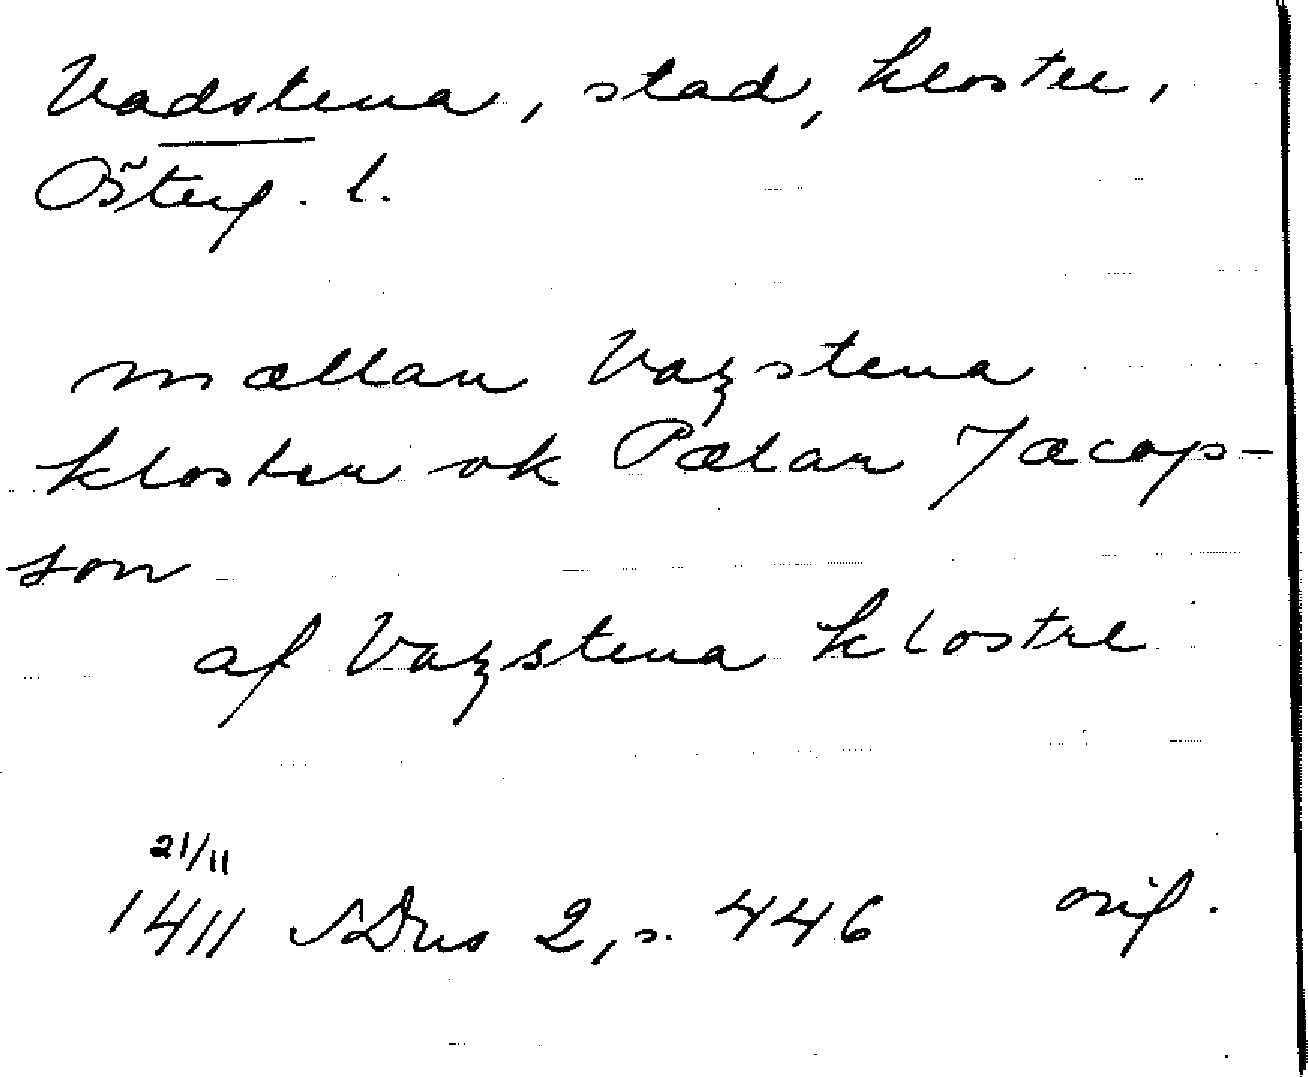 Vadstena, stad, kloster,
Österg. l.
mællan Vazstena
kloster ok Pætar Jæcop-
son
af Vazstena klostre
21/11
1411 SDns 2, s. 446 orig.